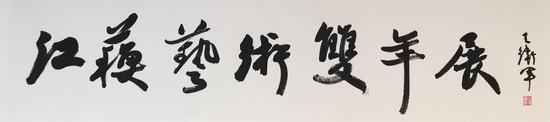 江蘇藝術雙年展
王衛軍